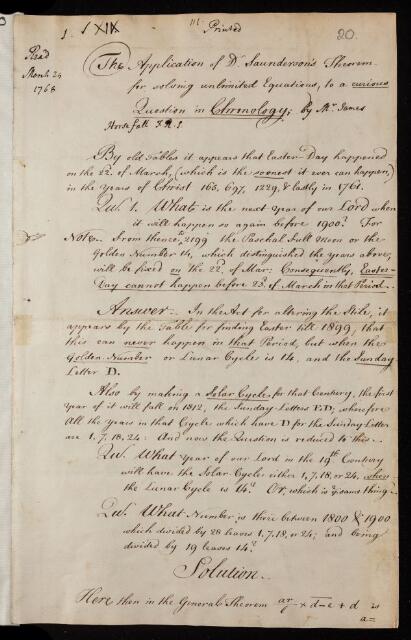 Printed
20.
Read
March 24
1768
The Application of Dr. Saunderson's Theorem
for solving unlimited Equations, to a curious
Question in Chronology; by Mr. James
Horsefall F.R.S.
By old Tables it appears that Easter-Day happened
on the 22d. of March, (which is the soonest it ever can happen,)
in the years of Christ 165, 697, 1229, & lastly in 1761.
Qu. 1. What is the next year of our Lord when
it will happen so again before 1900? For
Note. From thence, 2199 the Paschal Full Moon or the
Golden Number 14, which distinguished the years above,
will be fixed on the 22d. of Mar: Consequently, Easter-
Day cannot happen before 23d. of March in that Period.
Answer. In the Act for altering the Stile, it
appears by the Table for finding Easter till 1899, that
this can never happen in that Period, but when the
Golden Number or Lunar Cycle is 14, and the Sunday
Letter D.
Also by making a Solar Cycle for that Century, the first
year of it will fall on 1812, the Sunday Letters E D; wherefore
All the years in that Cycle which have D for the Sunday Letter
are 1, 7, 18, 24: And now the Question is reduced to this.
Qu. What year of our Lord in the 19th Century
will have the Solar Cycle either 1, 7, 18, or 24, when
the Lunar Cycle is 14? Or, which is ye same thing
Qu. What Number is there between 1800 & 1900
which divided by 28 leaves 1, 7, 18, or 24; and being
divided by 19 leaves 14?
Solution.
Here then in the General Theorem ar/c × d-e + d is
a=